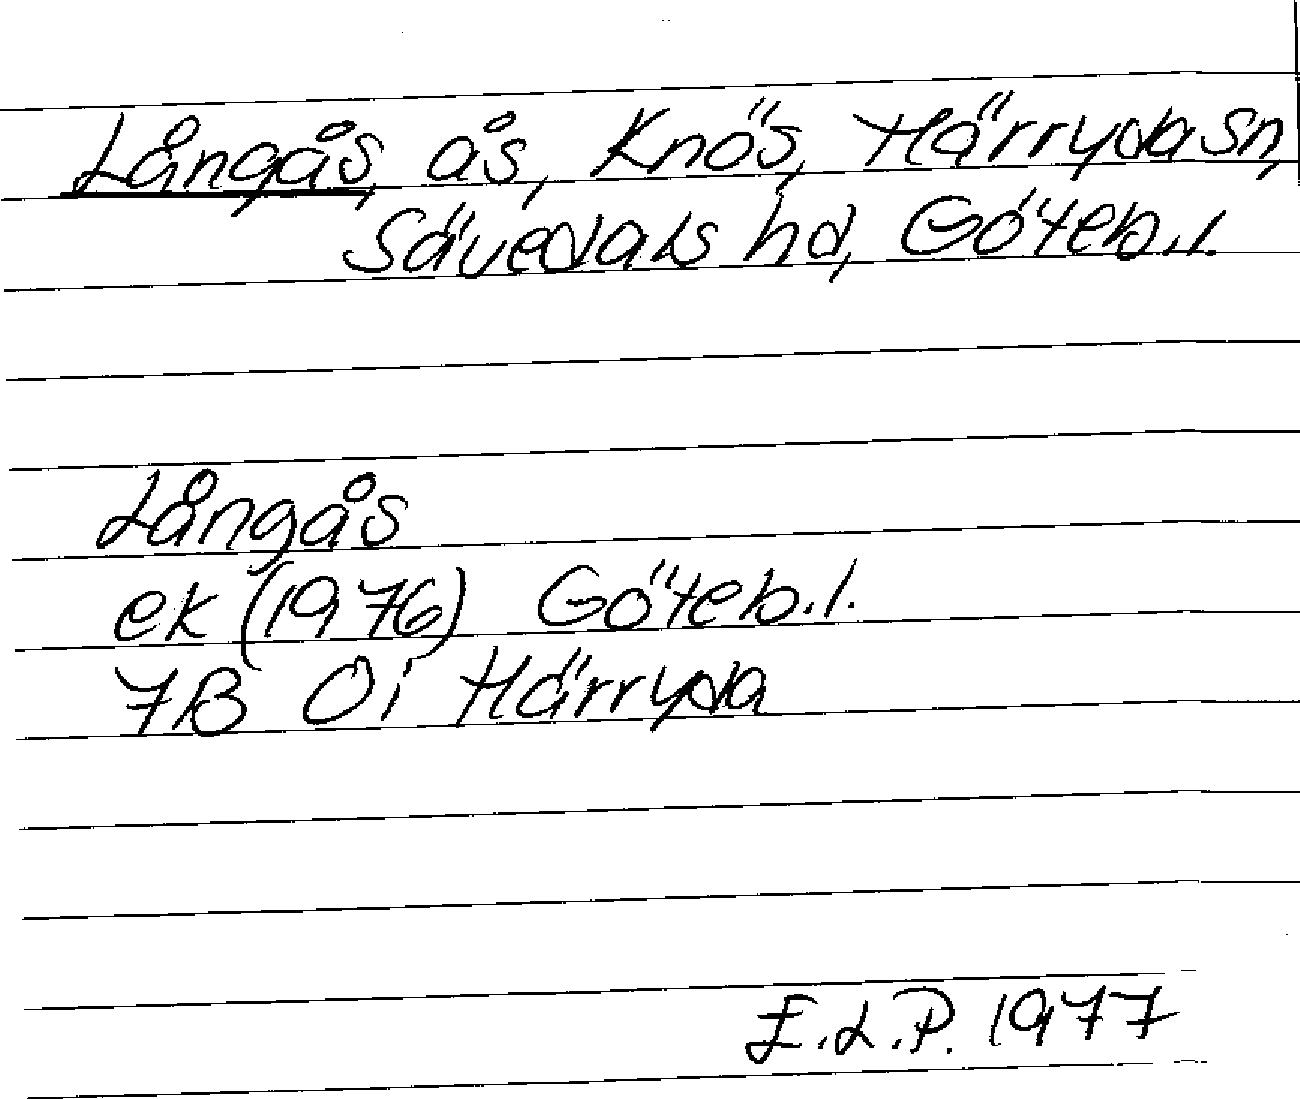 Långås, ås, Knös, Härryda sn,
Sävedals hd, Göteb.l.
Långås
ek (1976) Göteb.l.
7B 0i Härryda
E.L.P. 1977